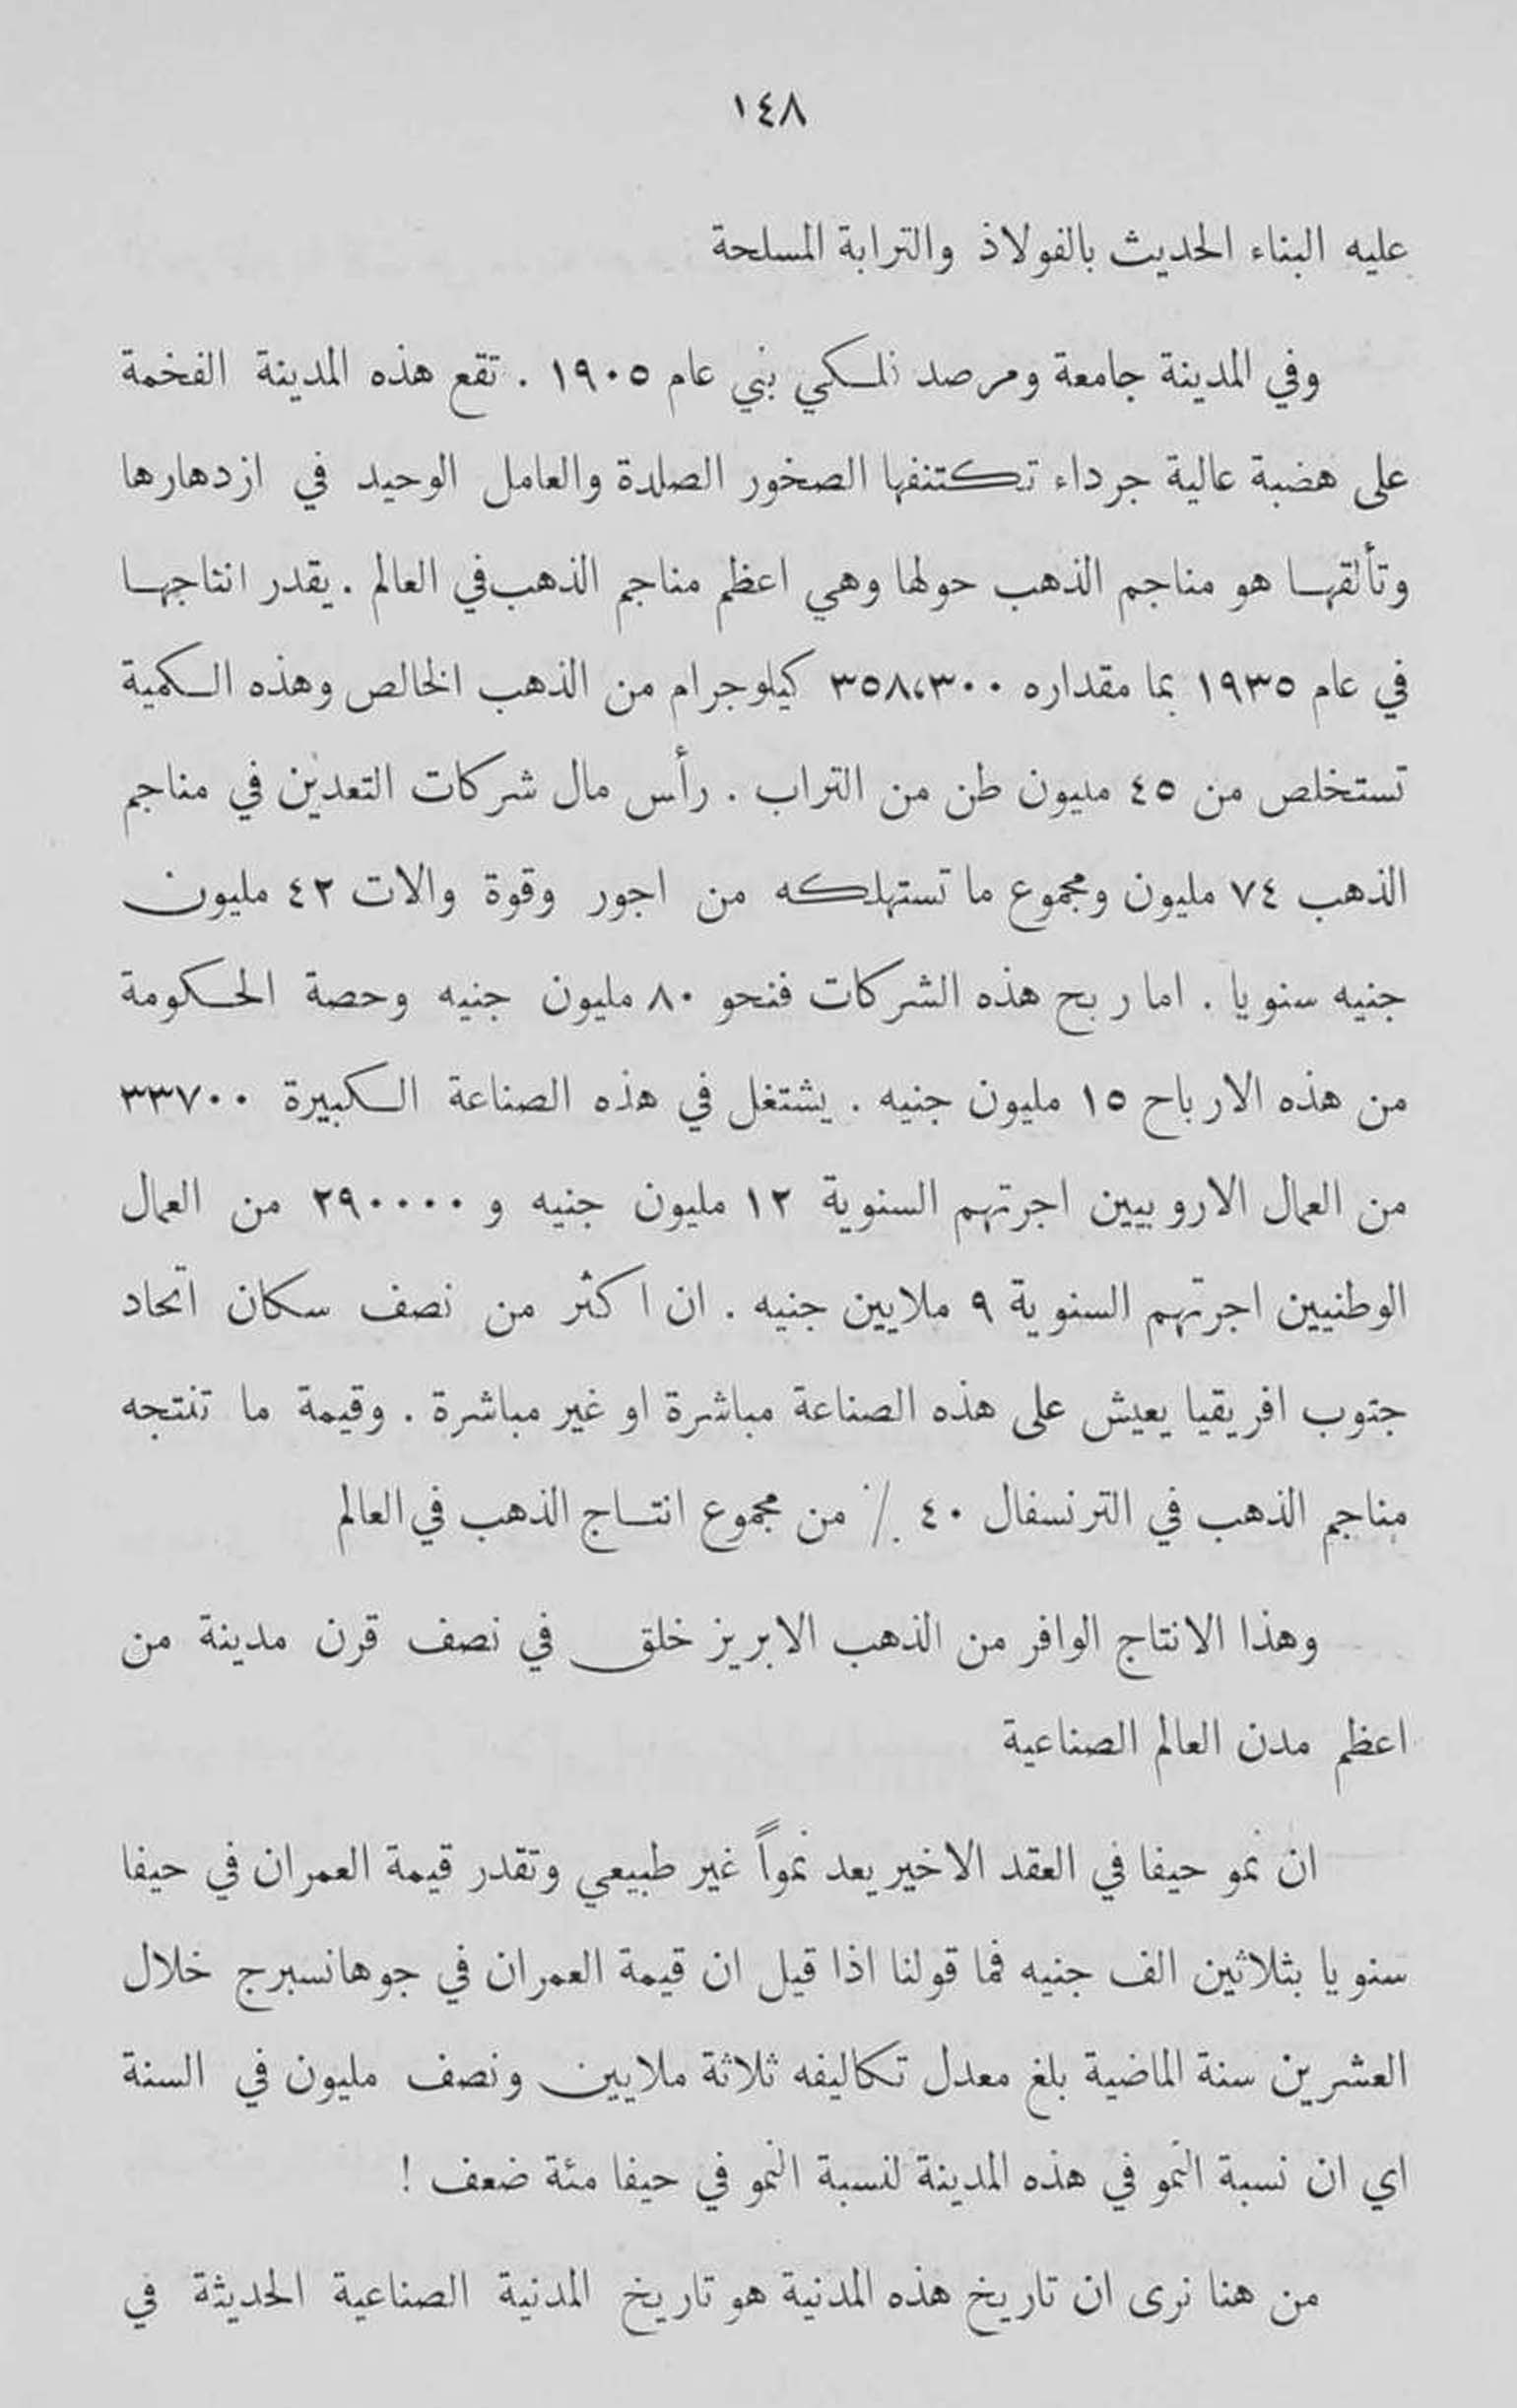 ١٤٨
عليه البناء الحديث بالفولاذ والترابة المسلحة
وفي المدينة جامعة ومرصد فلكي بني عام ١٩٠٥ . تقع هذه المدينة الفخمة
على هضبة عالية جرداء تكتنفها الصخور الصلدة والعامل الوحيد في ازدهارها
وتألقها هو مناجم الذهب حولها وهي اعظم مناجم الذهب في العالم . يقدر انتاجها
في عام ١٩٣٥ بما مقداره ٣٥٨،٣٠٠ كيلوجرام من الذهب الخالص وهذه الكمية
تستخلص من ٤٥ مليون طن من التراب . رأس مال شركات التعدين في مناجم
الذهب ٧٤ مليون ومجموع ما تستهلكه من اجور وقوة والات ٤٢ مليون
جنيه سنويا . اما ربح هذه الشركات فنحو ٨٠ مليون جنيه وحصة الحكومة
من هذه الارباح ١٥ مليون جنيه . يشتغل في هذه الصناعة الكبيرة ٣٣٧٠٠
من العمال الاروبيين اجرتهم السنوية ١٢ مليون جنيه و ٢٩٠٠٠٠ من العمال
الوطنيين اجرتهم السنوية ٩ ملايين جنيه . ان اكثر من نصف سكان اتحاد
جنوب افريقيا يعيش على هذه الصناعة مباشرة او غير مباشرة . وقيمة ما تنتجه
مناجم الذهب في الترنسفال ٤٠ ٪ من مجموع انتاج الذهب في العالم
وهذا الانتاج الوافر من الذهب الابريز خلق في نصف قرن مدينة من
اعظم مدن العالم الصناعية
ان نمو حيفا في العقد الاخير يعد نمواً غير طبيعي وتقدر قيمة العمران في حيفا
سنويا بثلاثين الف جنيه فما قولنا اذا قيل ان قيمة العمران في جوهانسبرج خلال
العشرين سنة الماضية بلغ معدل تكاليفه ثلاثة ملايين ونصف مليون في السنة
اي ان نسبة النمو في هذه المدينة لنسبة النمو في حيفا مئة ضعف !
من هنا نرى ان تاريخ هذه المدنية هو تاريخ المدنية الصناعية الحديثة في